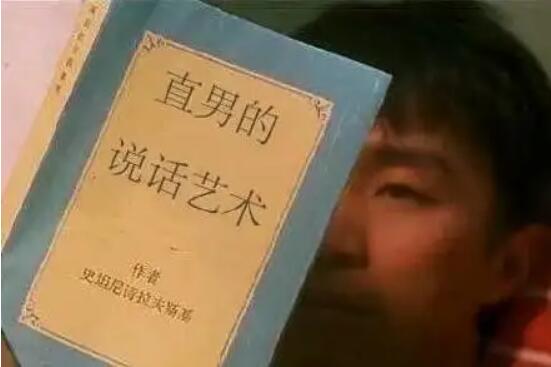 直男的
说话艺术
作者
史坦尼诗拉夫斯基